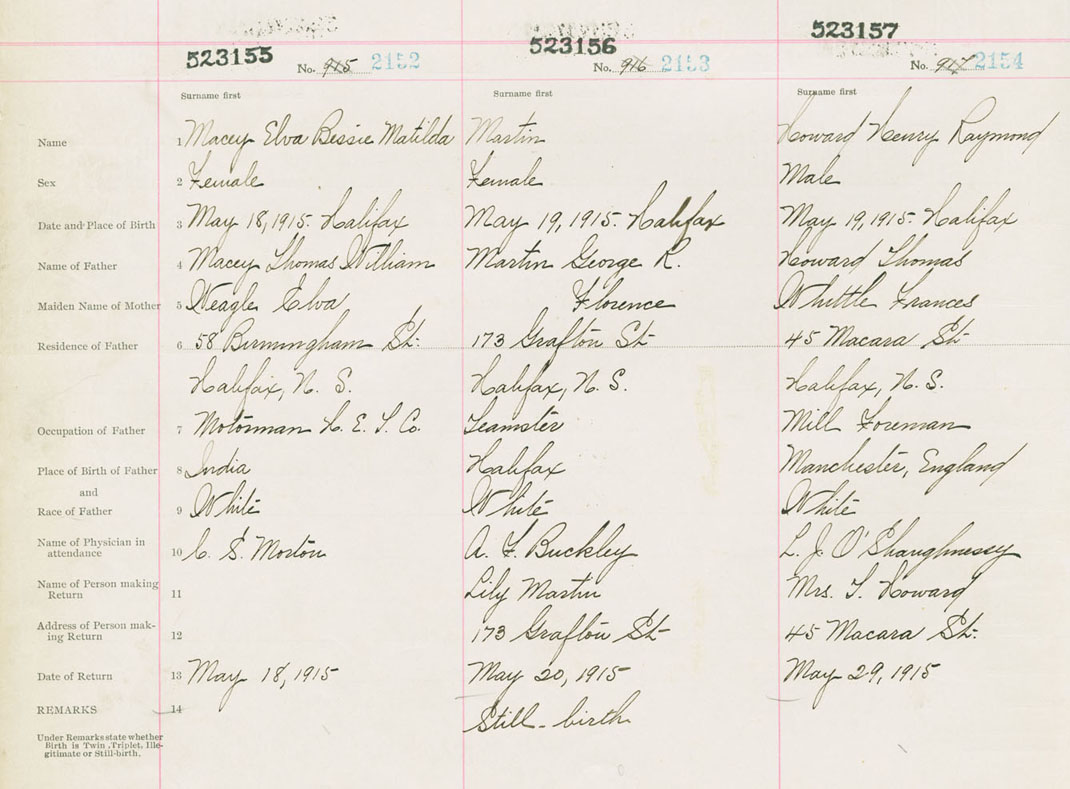 523155 523156 523157
No. 915 2152 No. 916 2153 No. 917 2154
Surname first Surname first Surname first
Name 1 Macey Elva Bessie Matilda Martin Howard Henry Raymond
Sex 2 Female Female Male
Date and Place of Birth 3 May 18, 1915. Halifax May 19, 1915. Halifax May 19, 1915. Halifax
Name of Father 4 Macey Thomas William Martin George R. Howard Thomas
Maiden Name of Mother 5 Weagle Elva Florence Whittle Frances
Residence of Father 6 58 Birmingham St. 173 Grafton St 45 Macara St
Halifax, N. S. Halifax, N. S. Halifax, N. S.
Occupation of Father 7 Motorman H. E. T. Co. Teamster Mill Foreman
Place of Birth of Father 8 India Halifax Manchester, England
and
Race of Father 9 White White White
Name of Physician in
attendance 10 C. S. Morton A. F. Buckley L. J. O'Shaughnessy
Name of Person making
Return 11 Lily Martin Mrs. T. Howard
Address of Person mak-
ing Return 12 173 Grafton St 45 Macara St.
Date of Return 13 May 18, 1915 May 20, 1915 May 29, 1915
REMARKS 14 Still-birth
Under Remarks state whether
Birth is Twin, Triplet, Ille-
gitimate or Still-birth.